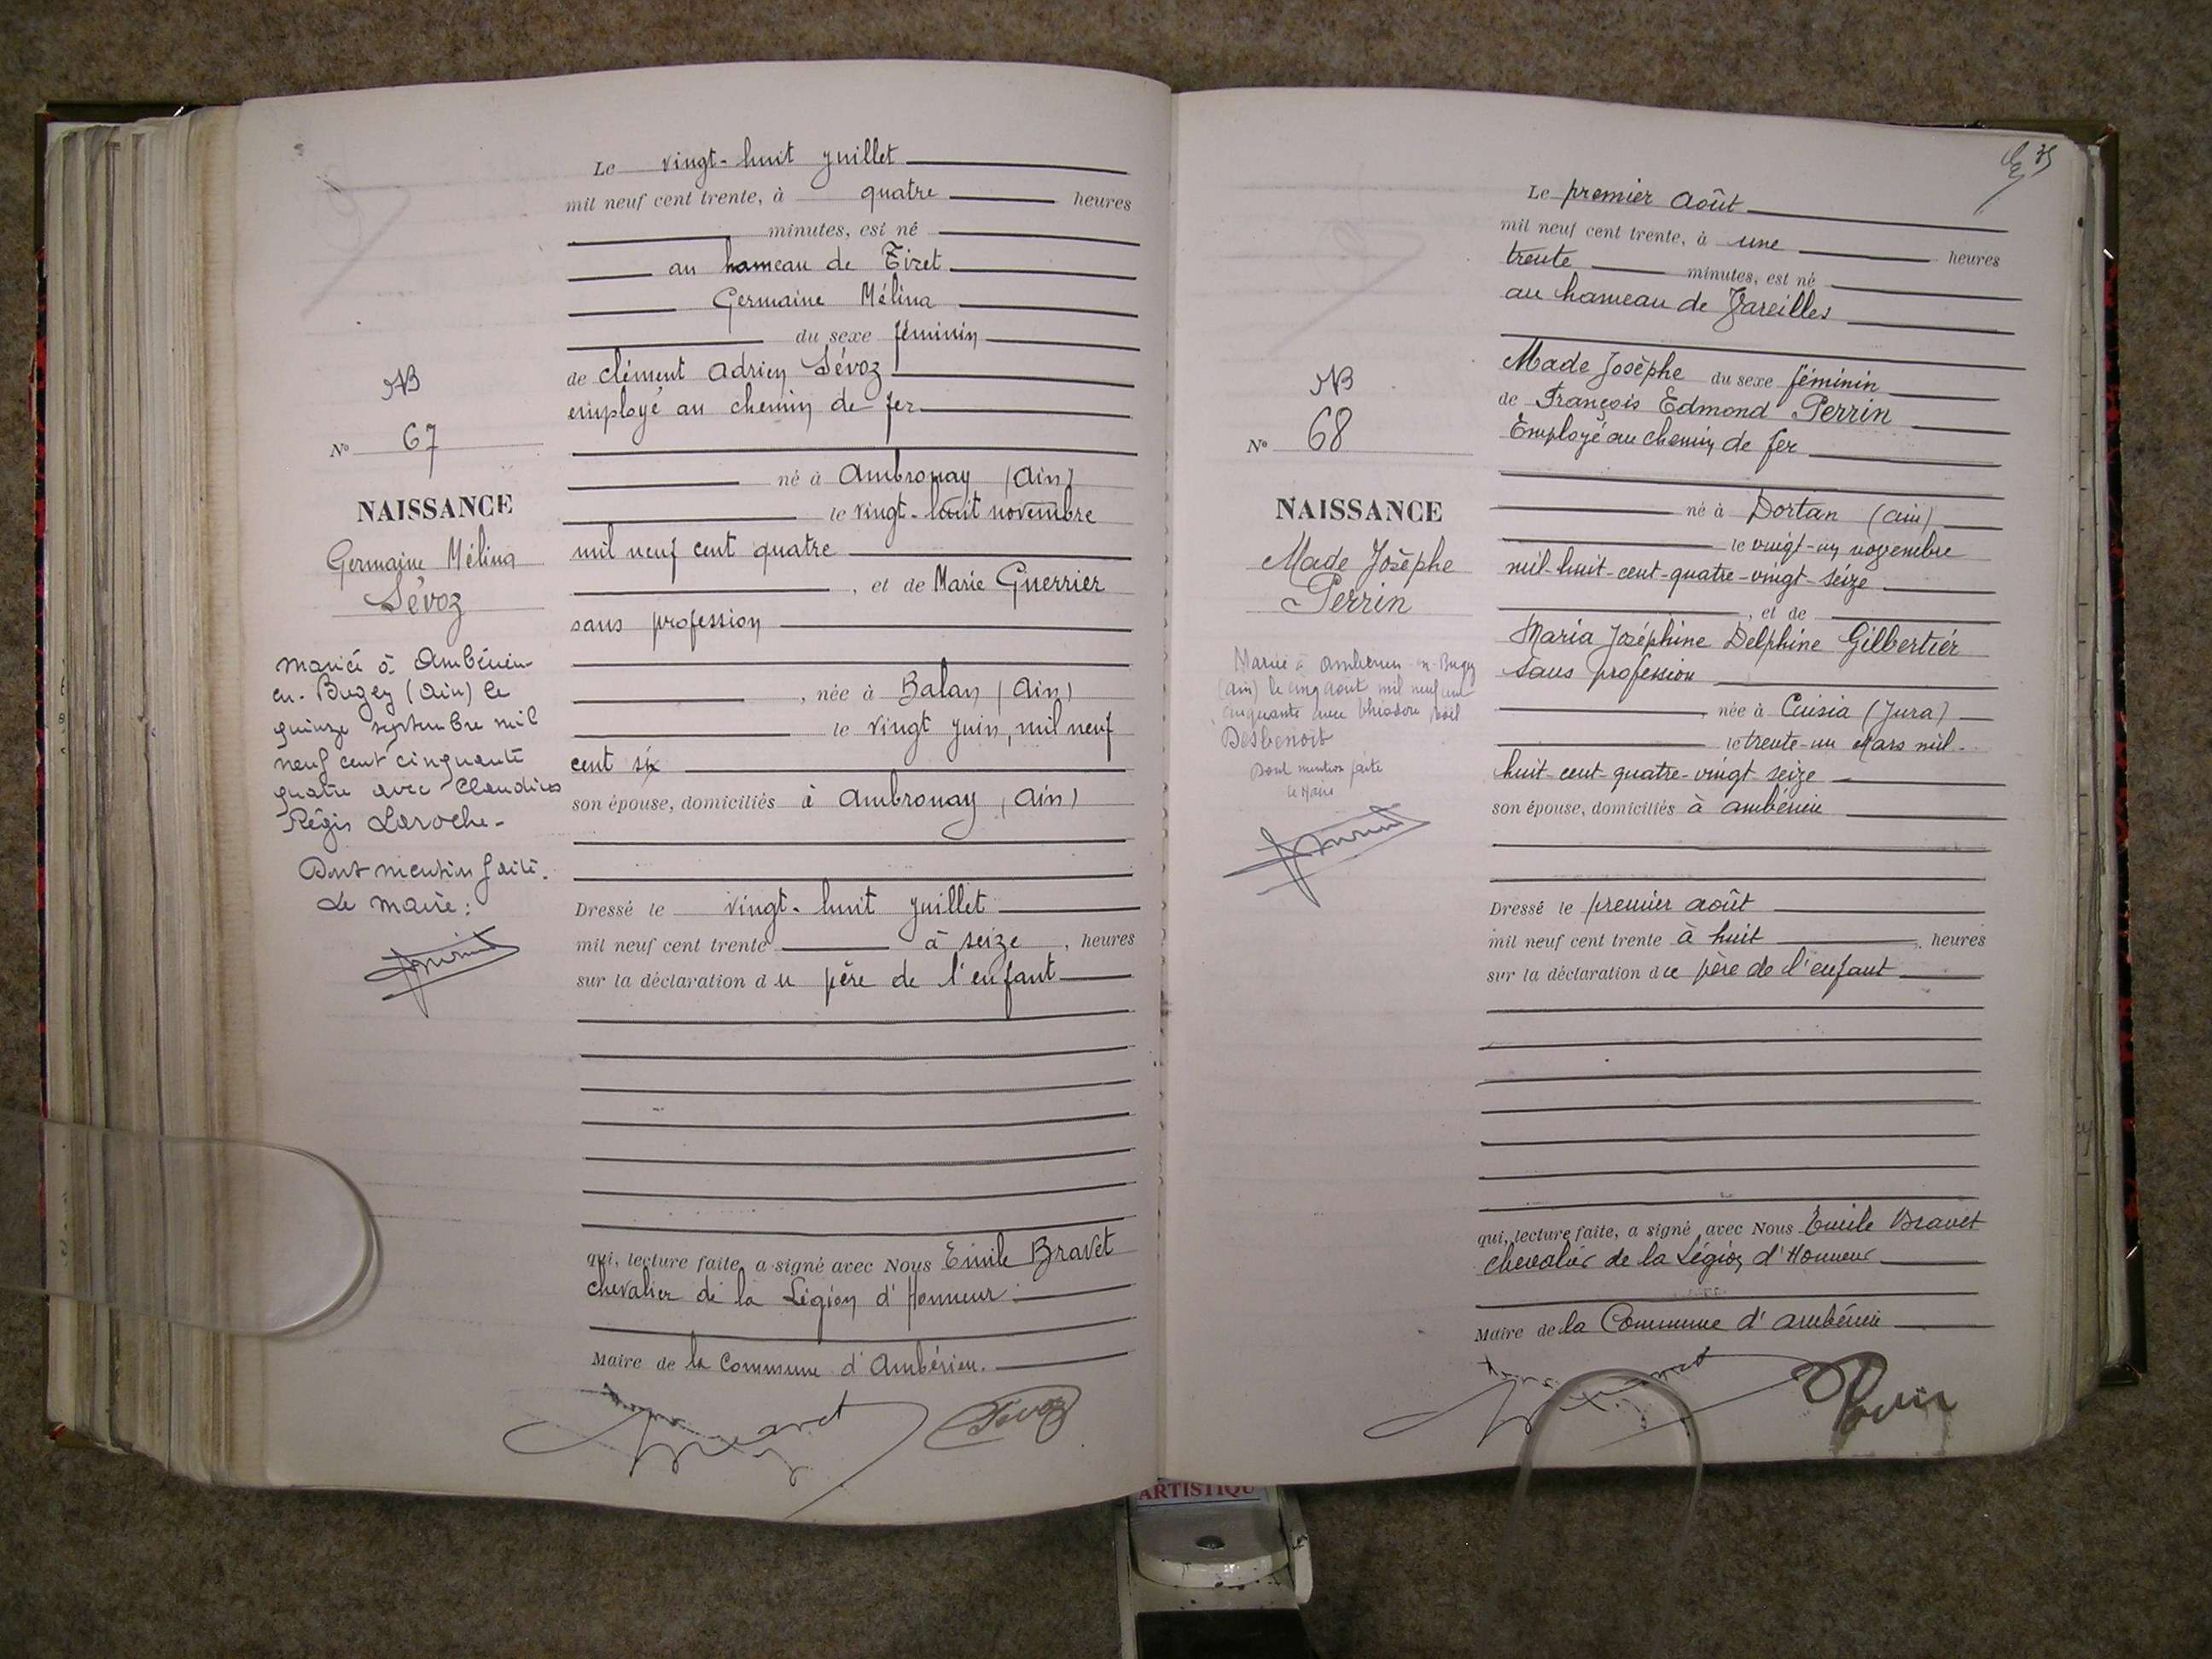 Le vingt-huit juillet
mil neuf cent trente, à quatre heures
minutes, est né
au hameau de Tiret
Germaine Mélina
du sexe féminin
de Clément Adrien Sévoz
employé au chemin de fer
né à Ambronay (Ain)
le vingt-huit novembre
mil neuf cent quatre
, et de Marie Guerrier
sans profession
, née à Balan (Ain)
le vingt juin, mil neuf
cent six
son épouse, domiciliés à Ambronay (Ain)
Dressé le vingt-huit juillet
mil neuf cent trente à seize, heures
sur la déclaration du père de l'enfant
qui, lecture faite, a signé avec Nous Emile Bravet
chevalier de la Légion d'Honneur
Maire de la Commune d'Ambérieu.
Sévoz
NB
No 67
NAISSANCE
Germaine Mélina
Sévoz
Mariée à Ambérieu-
en-Bugey (Ain) le
quinze septembre mil
neuf cent cinquante
quatre avec Claudius
Régis Laroche-
Dont mention faite.
Le maire:
35
Le premier Août
mil neuf cent trente, à une heures
trente minutes, est né
au hameau de Vareilles
Made Josèphe du sexe féminin
de François Edmond Perrin
Employé au chemin de fer
né à Dortan (Ain)
le vingt-un novembre
mil-huit-cent-quatre-vingt-seize
, et de
Maria Joséphine Delphine Gilbertier
Sans profession
, née à Cuisia (Jura)
le trente-un Mars mil-
huit-cent-quatre-vingt-seize
son épouse, domiciliés à Ambérieu
Dressé le premier août
mil neuf cent trente à huit, heures
sur la déclaration du père de l'enfant
qui, lecture faite, a signé avec Nous Emile Bravet
chevalier de la Légion d'Honneur
Maire de la Commune d'Ambérieu
NB
No 68
NAISSANCE
Made Josèphe
Perrin
Mariée à Ambérieu-en-Bugey
(Ain) le cinq août mil neuf cent
cinquante avec Théodore Noël
Desbenoit
Dont mention faite
Le Maire
ARTISTIQU